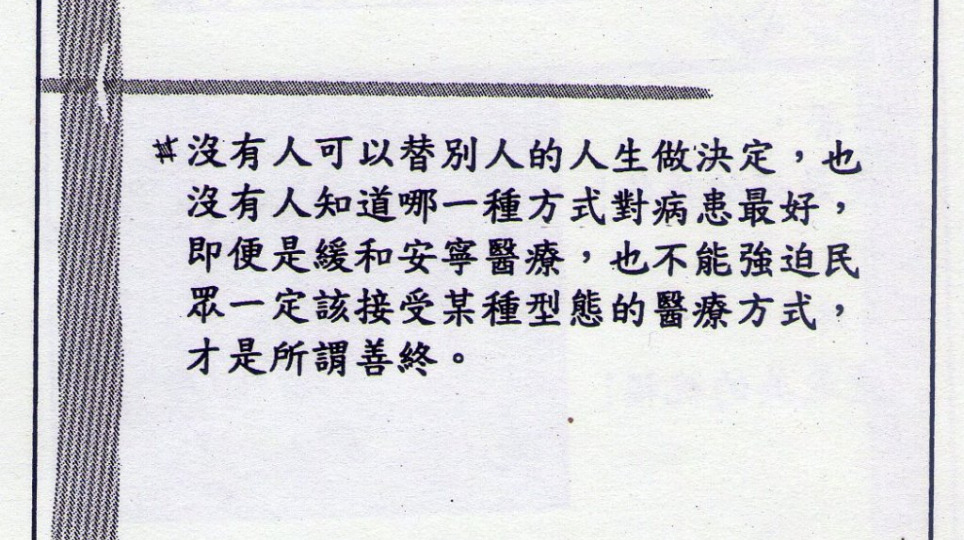 #沒有人可以替別人的人生做決定，也
沒有人知道哪一種方式對病患最好，
即便是緩和安寧醫療，也不能強迫民
眾一定該接受某種型態的醫療方式，
才是所謂善終。